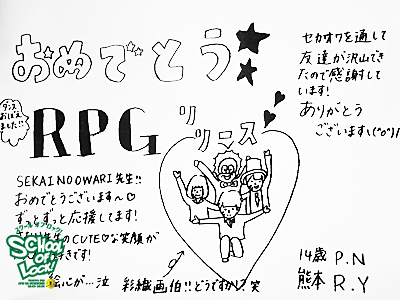 おめでとう
セカオワを通して
友達が沢山でき
たので感謝して
います!
ありがとう
ございます\(^o^)/
ダンス
おぼえ
ました!!
RPG
リリース
SEKAI NO OWARI先生!!
おめでとうございます〜♡
ずっとずっと応援してます!
CUTE♡な笑顔が
きです!
絵心が…泣
彩織画伯!!どうですか!?笑
14歳 P.N
熊本 R.Y
スクール オブ ロック!
SCHOOL
OF
LOCK!